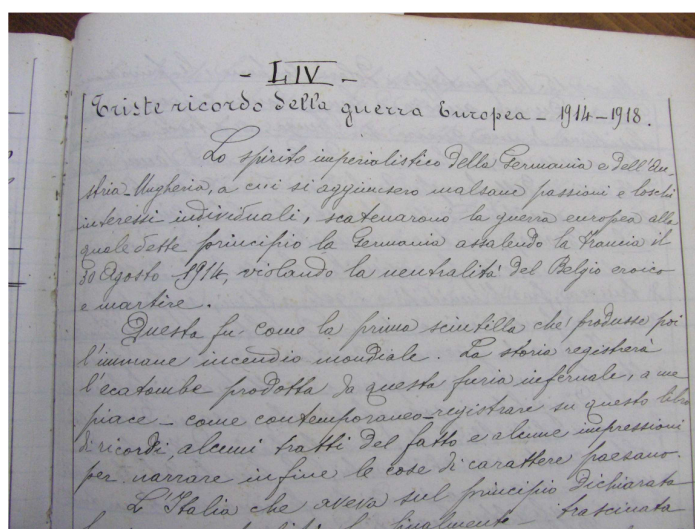 - LIV -
Triste ricordo della guerra Europea - 1914-1918.
Lo spirito imperialistico della Germania e dell'Au-
stria-Ungheria, a cui si aggiunsero malsane passioni e loschi
interessi individuali, scatenarono la guerra europea alla
quale dette principio la Germania assalendo la Francia il
30 Agosto 1914, violando la neutralità del Belgio eroico
e martire.
Questa fu come la prima scintilla che produsse poi
l'immane incendio mondiale. La storia registrerà
l'ecatombe prodotta da questa furia infernale, a me
piace - come contemporaneo - registrare su questo libro
di ricordi alcuni tratti del fatto e alcune impressioni
per narrare infine le cose di carattere paesano.
L'Italia che aveva sul principio dichiarata
finalmente - trascinata